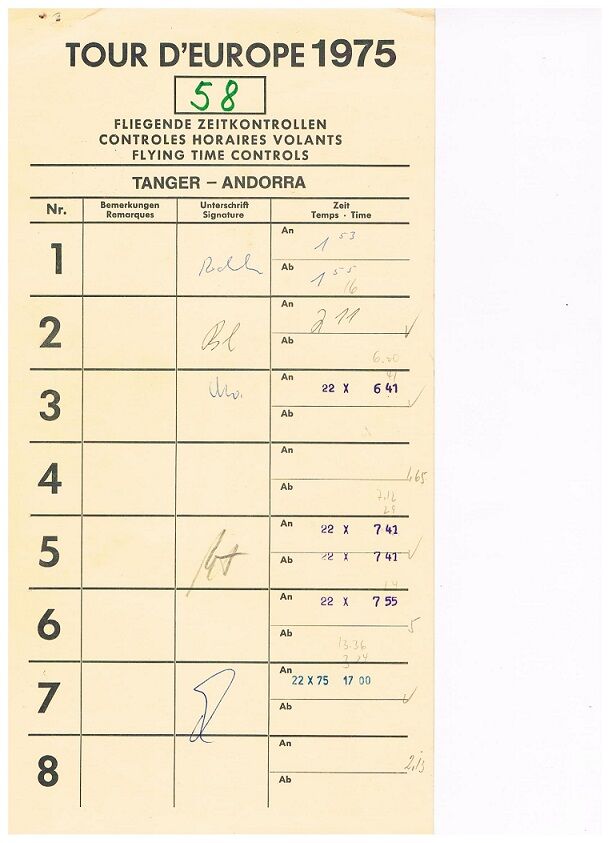 TOUR D'EUROPE 1975
58
FLIEGENDE ZEITKONTROLLEN
CONTROLES HORAIRES VOLANTS
FLYING TIME CONTROLS
TANGER – ANDORRA
Nr. Bemerkungen Remarques Unterschrift Signature Zeit Temps · Time
1 An 1 53
Ab 1 55
16
2 An 2 11
Ab
6.20
41
3 An 22 X 6 41
Ab
4 An
1,65
Ab
7.12
29
5 An 22 X 7 41
Ab 22 X 7 41
14
6 An 22 X 7 55
5
Ab
13.36
3 24
7 An 22 X 75 17 00
Ab
8 An
2,13
Ab